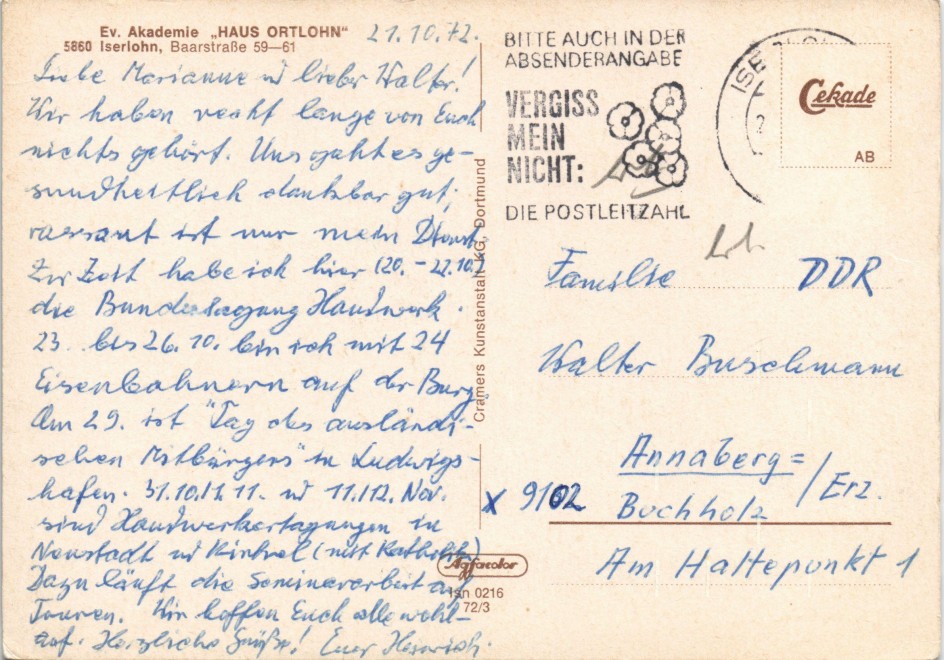 Ev. Akademie „HAUS ORTLOHN“
5860 Iserlohn, Baarstraße 59—61
21.10.72.
Liebe Marianne u lieber Walter!
Wir haben recht lange von Euch
nichts gehört. Uns geht es ge-
sundheitlich dankbar gut;
rassant ist nur mein Dienst.
Zur Zeit habe ich hier (20.-22.10.)
die Bundestagung Handwerk.
23. bis 26.10. bin ich mit 24
Eisenbahnern auf der Burg.
Am 29. ist "Tag des ausländi-
schen Mitbürgers" in Ludwigs-
hafen. 31.10./1.11. u 11./12. Nov.
sind Handwerkertagungen in
Neustadt u (mit Katholik.)
Dazu läuft die Seminararbeit auf
Touren. Wir hoffen Euch alle wohl-
auf. Herzliche Grüße! Euer Heinrich.
Cramers Kunstanstalt KG, Dortmund
Agfacolor
Isn 0216
72/3
BITTE AUCH IN DER
ABSENDERANGABE
VERGISS
MEIN
NICHT:
DIE POSTLEITZAHL
Cekade
AB
Familie DDR
Walter Buschmann
Annaberg=
Buchholz /Erz.
X 9102
Am Haltepunkt 1